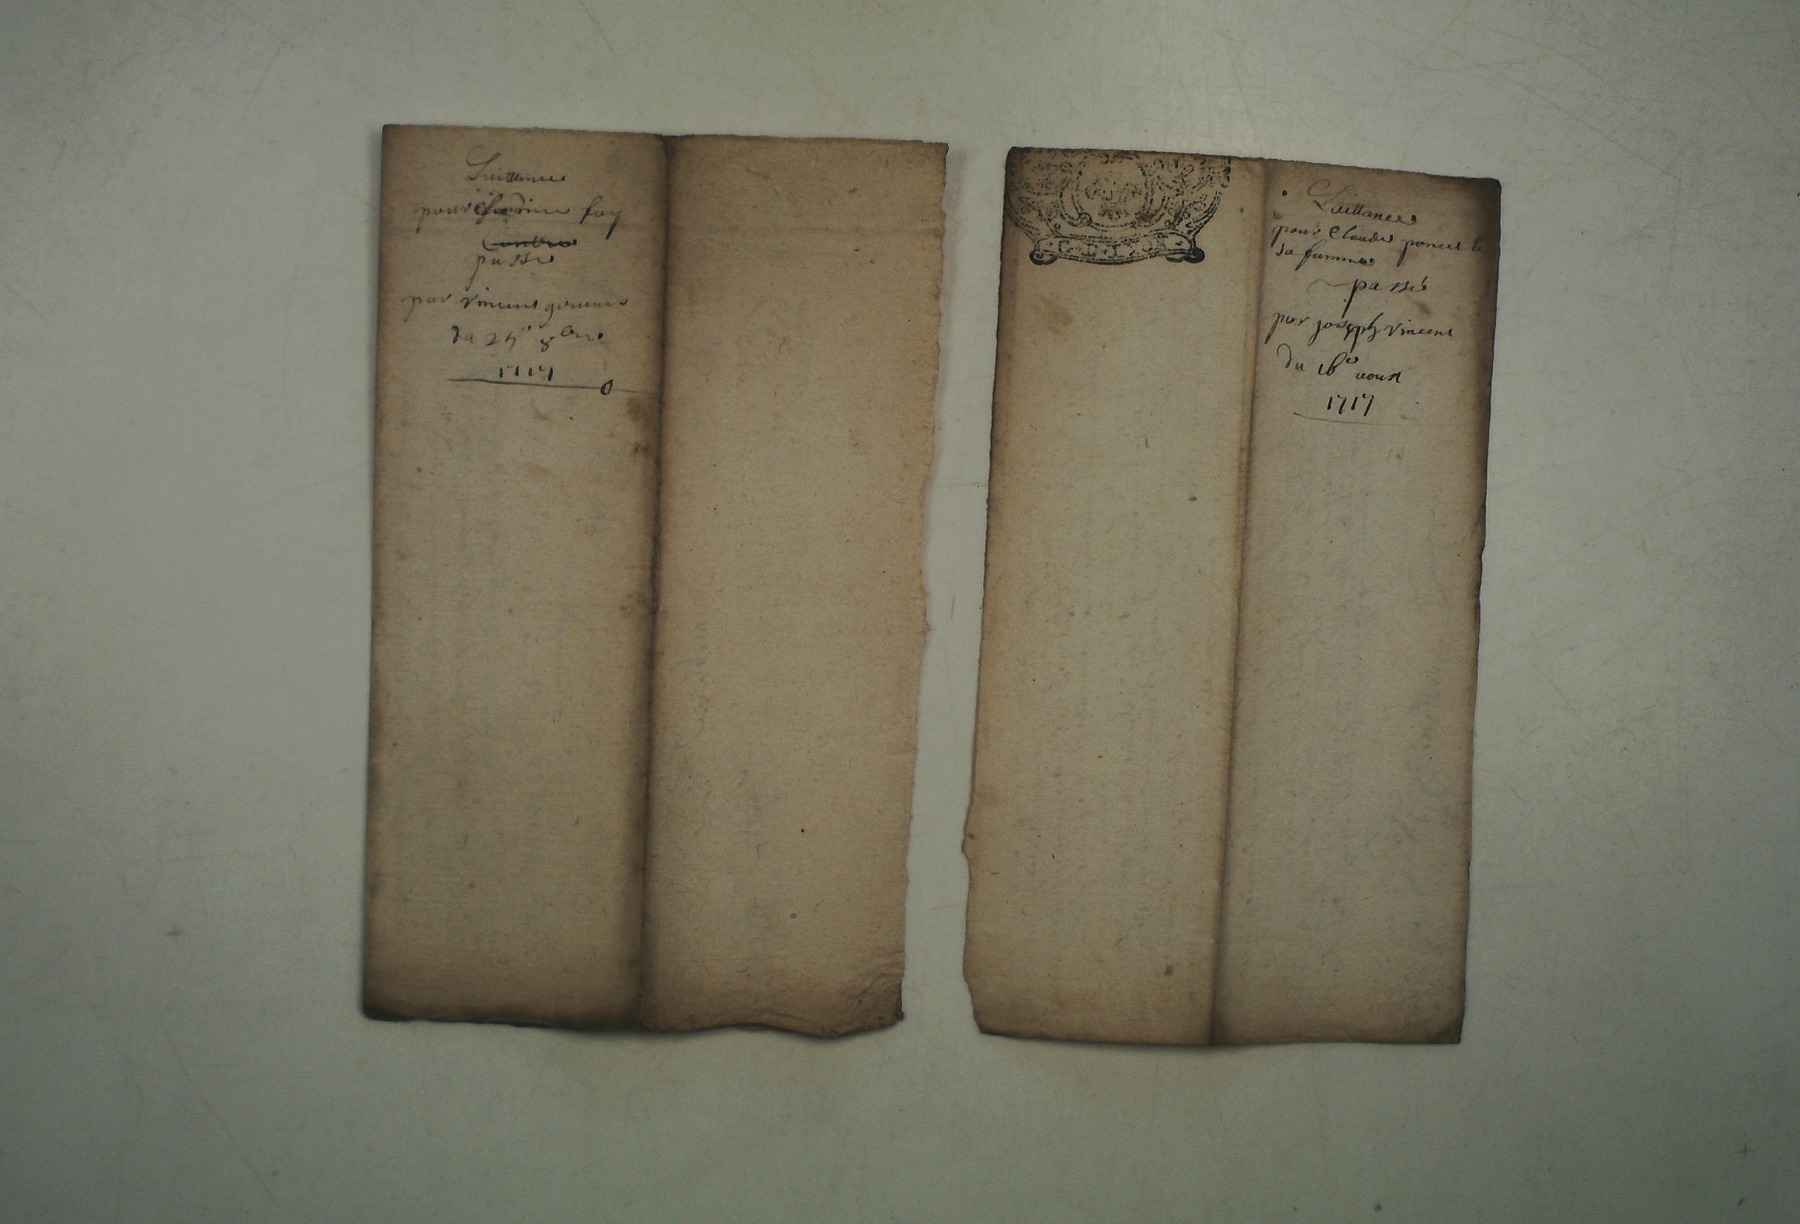 Quittance
pour fay
contre
passé
par Vincent
du 25e 8bre
1717
Quittance
pour Claude poncet &
sa femme
passé
par joseph Vincent
du 16e aoust
1717